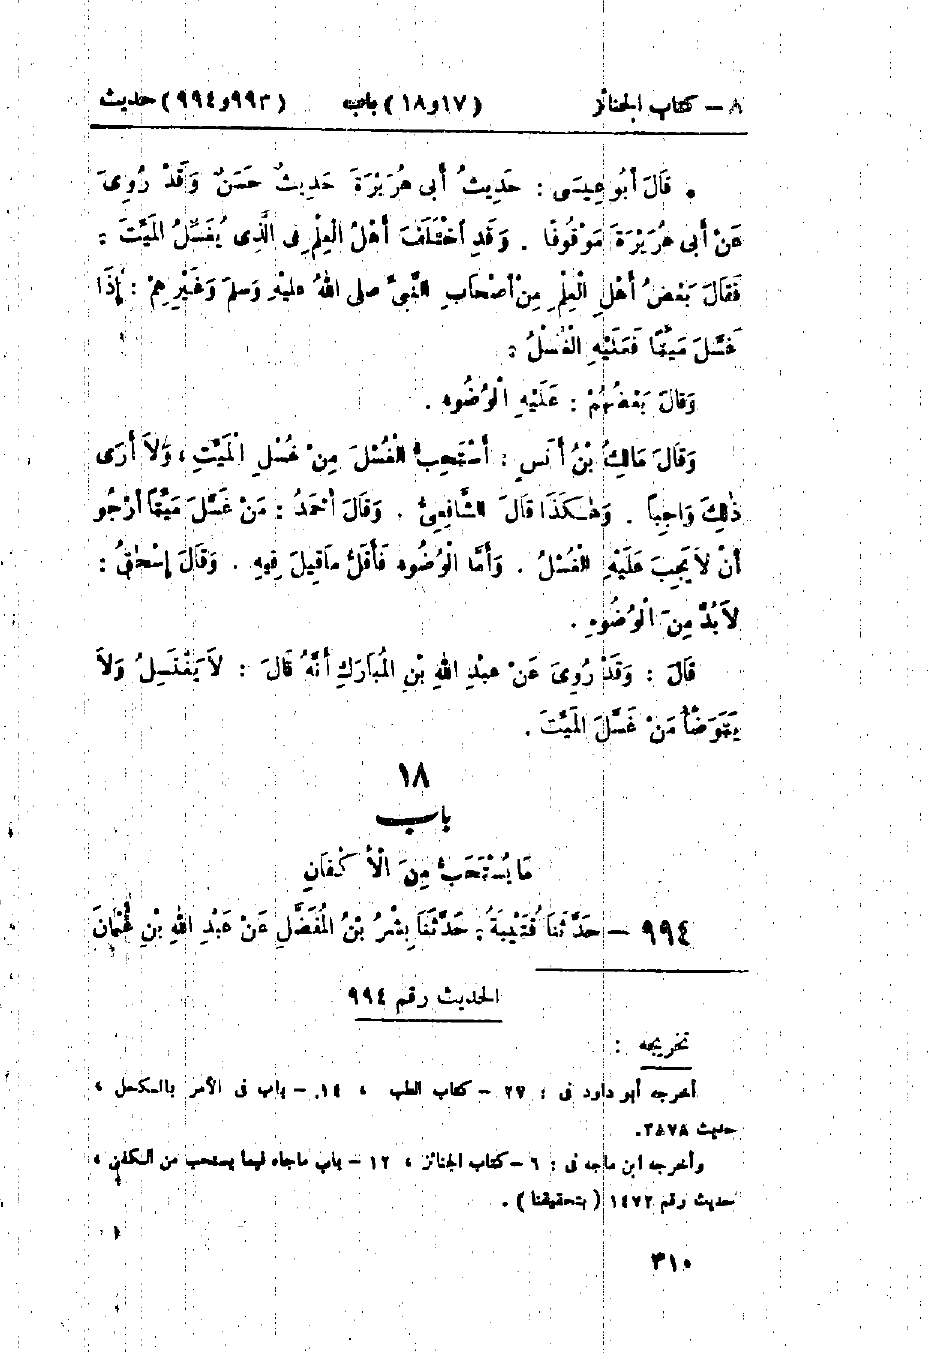 ٨ – كتاب الجنائز (١٧ و١٨) باب (٩٩٣ و٩٩٤) حديث
• قَالَ أَبُو عِيسَى : حَدِيثُ أَبِى هُرَيْرَةَ حَدِيثٌ حَسَنٌ وَقَدْ رُوِىَ
عَنْ أَبِى هُرَيْرَةَ مَوْقُوفًا . وَقَدِ اخْتَلَفَ أَهْلُ الْعِلْمِ فِى الَّذِى يُغَسِّلُ الْمَيِّتَ :
فَقَالَ بَعْضُ أَهْلِ الْعِلْمِ مِنْ أَصْحَابِ النَّبِىِّ صلى اللهُ عليْهِ وَسلمَ وَغَيْرِهِمْ : إِذَا
غَسَّلَ مَيِّتًا فَعَلَيْهِ الْغُسْلُ :
وَقَالَ بَعْضُهُمْ : عَلَيْهِ الْوُضُوء .
وَقَالَ مَالِكُ بْنُ أَنَسٍ : أَسْتَحِبُّ الْغُسْلَ مِنْ غُسْلِ الْمَيِّتِ ، وَلَا أَرَى
ذٰلِكَ وَاجِبًا . وَهٰكَذَا قَالَ الشَّافِعِىُّ . وَقَالَ أَحْمَدُ : مَنْ غَسَّلَ مَيِّتًا أَرْجُو
أَنْ لَا يَجِبَ عَلَيْهِ الْغُسْلُ . وَأَمَّا الْوُضُوء فَأَقَلُّ مَا قِيلَ فِيهِ . وَقَالَ إِسْحٰقُ :
لَا بُدَّ مِنَ الْوُضُوءِ .
قَالَ : وَقَدْ رُوِىَ عَنْ عبْدِ اللهِ بْنِ الْمُبَارَكِ أَنَّهُ قَالَ : لَا يَغْتَسِلُ وَلَا
يَتَوَضَّأُ مَنْ غَسَّلَ الْمَيِّتَ .
١٨
باب
مَا يُسْتَحَبُّ مِنَ الْأَكْفَانِ
٩٩٤ – حَدَّثَنَا قُتَيْبَةُ : حَدَّثَنَا بِشْرُ بْنُ الْمُفَضَّلِ عَنْ عَبْدِ اللهِ بْنِ عُثْمَانَ
الحديث رقم ٩٩٤
تخريجه :
أخرجه أبو داود فى : ٢٧ – كتاب الطب ، ١٤ – باب فى الأمر بالكحل ،
حديث ٣٨٧٨.
وأخرجه ابن ماجه فى : ٦ – كتاب الجنائز ، ١٢ – باب ماجاء فيما يستحب من الكفن ،
حديث رقم ١٤٧٢ ( بتحقيقنا ) .
٣١٠